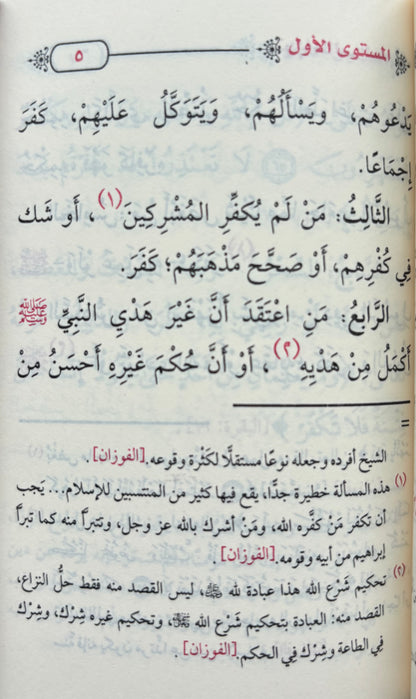 المستوى الأول
٥
يَدْعُوهُمْ، ويَسْأَلُهُمْ، وَيَتَوَكَّلُ عَلَيْهِمْ، كَفَرَ
إِجْمَاعًا.
الثَّالِثُ: مَنْ لَمْ يُكَفِّرِ المُشْرِكِينَ(١)، أَو شَك
فِي كُفْرِهِمْ، أَوْ صَحَّحَ مَذْهَبَهُمْ؛ كَفَرَ.
الرَّابِعُ: مَنِ اعْتَقَدَ أَنَّ غَيْرَ هَدْيِ النَّبِيِّ ﷺ
أَكْمَلُ مِنْ هَدْيِهِ(٢)، أَوْ أَنَّ حُكْمَ غَيْرِهِ أَحْسَنُ مِنْ
=
الشيخ أفرده وجعله نوعًا مستقلًا لكَثْرة وقوعه. [الفوزان].
(١) هذه المسألة خطيرة جدًّا، يقع فيها كثير من المنتسبين للإسلام... يجب
أن تكفر مَنْ كفَّره الله، ومَنْ أشرك بالله عز وجل، وتتبرأ منه كما تبرأ
إبراهيم من أبيه وقومه. [الفوزان].
(٢) تحكيم شَرْع الله هذا عبادة لله ﷻ، ليس القصد منه فقط حلُّ النزاع،
القصد منه: العبادة بتحكيم شَرْع الله ﷻ، وتحكيم غيره شِرْك، وشِرْك
فِي الطاعة وشِرْك فِي الحكم. [الفوزان].